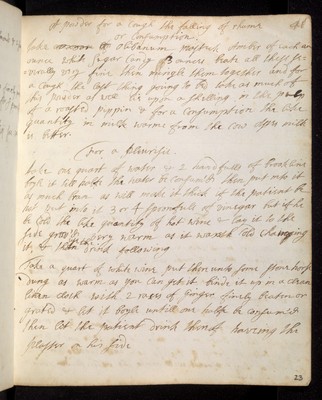 A pouder for a Cough the falling of rhume
or Consumption.
Take olibanum mastick Amber of each an
ounce white Sugar Candy 3 ounces beate all these se-
verally very fine then mingle them together and for
a Cough, the last thing going to bed take as much of
this pouder as will lie upon a shilling, in the
of a rosted pippin & for a Consumption the like
quantity in milk warme from the Cow
is better.
For a pleurisie.
Take one quart of water & 2 handfulls of
boyle it till halfe the water be Consumed then put into it
as much as will make it thick if the patient be
hot put into it 3 or 4 spoonfulls of vinegar but if he
be Cold the like quantity of hot wine & lay it to the
side very warm as it waxeth Cold changeing
it, & the drink following
Take a quart of white wine put then into some stonehorse
dung as warm as you Can get it binde it up in a clean
linen cloth with 2 races of ginger finely beaten or
grated & let it boyle untill one halfe be consumed
then let the patient drink thereof haveing the
plaster on his side
23